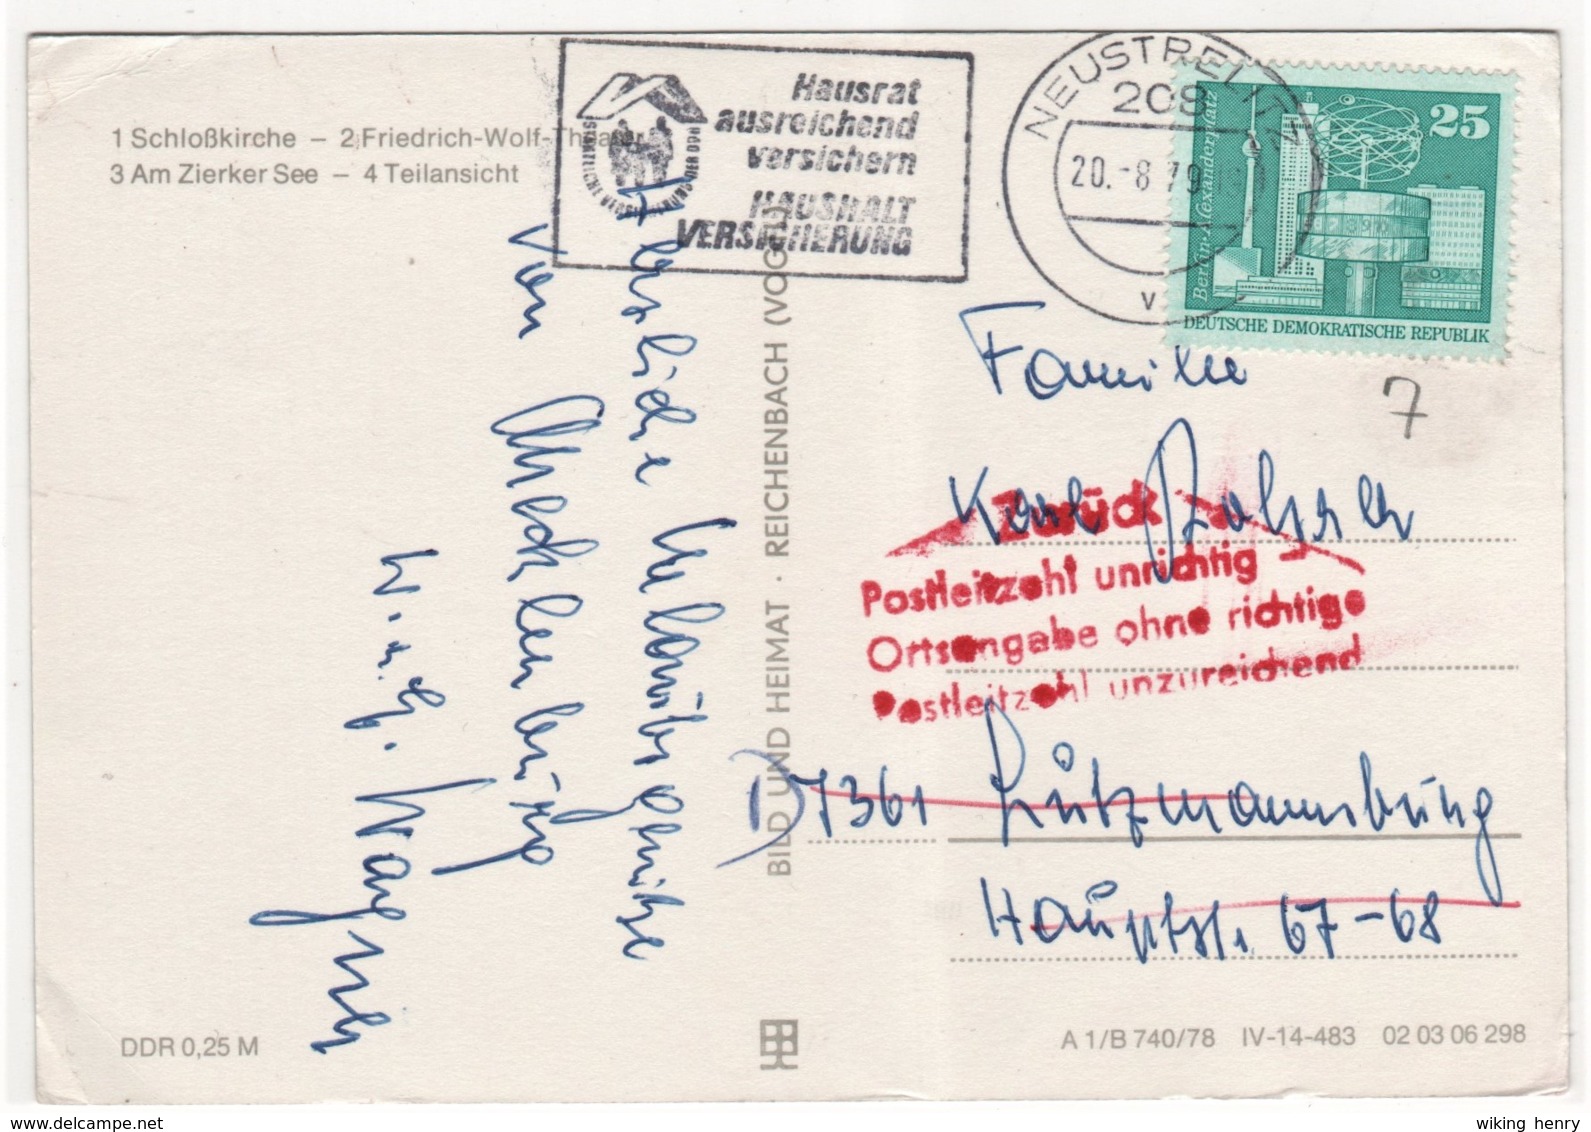 1 Schloßkirche – 2 Friedrich-Wolf-Theater
3 Am Zierker See – 4 Teilansicht
Hausrat
ausreichend
versichern
HAUSHALT
VERSICHERUNG
STAATLICHE VERSICHERUNG DER DDR
NEUSTRELITZ
208
20.-8.79
v
25
Berlin-Alexanderplatz
DEUTSCHE DEMOKRATISCHE REPUBLIK
7
Herzliche Urlaubsgrüße
von Mecklenburg
Wagner
BILD UND HEIMAT · REICHENBACH (VOGTL)
Familie
Karl
Zurück
Postleitzahl unrichtig
Ortsangabe ohne richtige
Postleitzahl unzureichend
7361 Lutzmannsburg
Hauptstr. 67-68
DDR 0,25 M
A 1/B 740/78 IV-14-483 02 03 06 298
www.delcampe.net
wiking henry